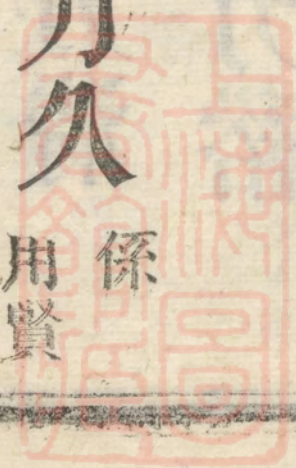 係
久
用賢
上海圖
書館藏